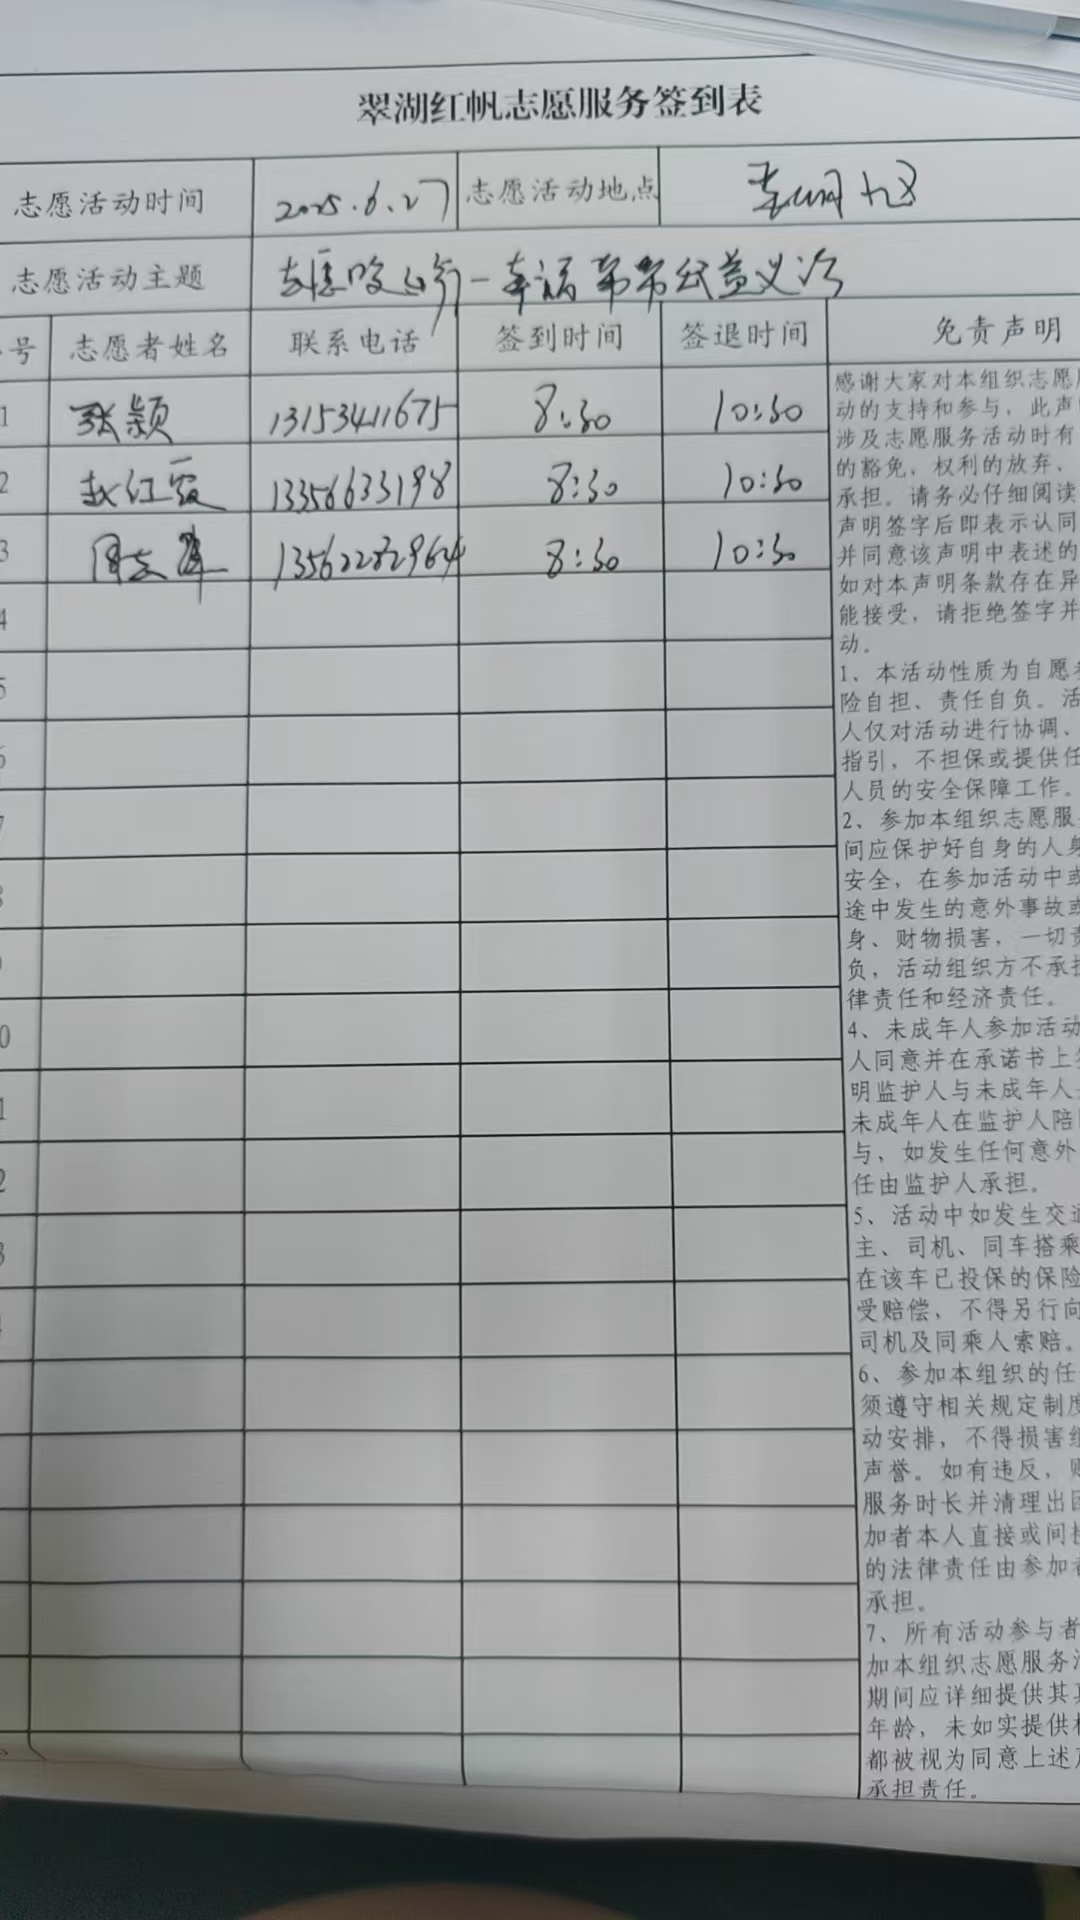 翠湖红帆志愿服务签到表
志愿活动时间 2025.6.27 志愿活动地点
志愿活动主题 志愿 益义
号 志愿者姓名 联系电话 签到时间 签退时间 免责声明
1 张颖 13153411675 8:30 10:30
2 赵红霞 13356633198 8:30 10:30
3 周 13562282964 8:30 10:30
4
5
6
7
8
0
1
2
3
感谢大家对本组织志愿
动的支持和参与，此声
涉及志愿服务活动时有
的豁免，权利的放弃、
承担。请务必仔细阅读
声明签字后即表示认同
并同意该声明中表述的
如对本声明条款存在异
能接受，请拒绝签字并
动。
1、本活动性质为自愿
险自担、责任自负。活
人仅对活动进行协调、
指引，不担保或提供任
人员的安全保障工作。
2、参加本组织志愿服
间应保护好自身的人身
安全，在参加活动中或
途中发生的意外事故或
身、财物损害，一切责
负，活动组织方不承担
律责任和经济责任。
4、未成年人参加活动
人同意并在承诺书上
明监护人与未成年人
未成年人在监护人陪
与，如发生任何意外
任由监护人承担。
5、活动中如发生交通
主、司机、同车搭乘
在该车已投保的保险
受赔偿，不得另行向
司机及同乘人索赔。
6、参加本组织的任
须遵守相关规定制度
动安排，不得损害组
声誉。如有违反，
服务时长并清理出
加者本人直接或间接
的法律责任由参加者
承担。
7、所有活动参与者
加本组织志愿服务活
期间应详细提供其真
年龄，未如实提供
都被视为同意上述
承担责任。